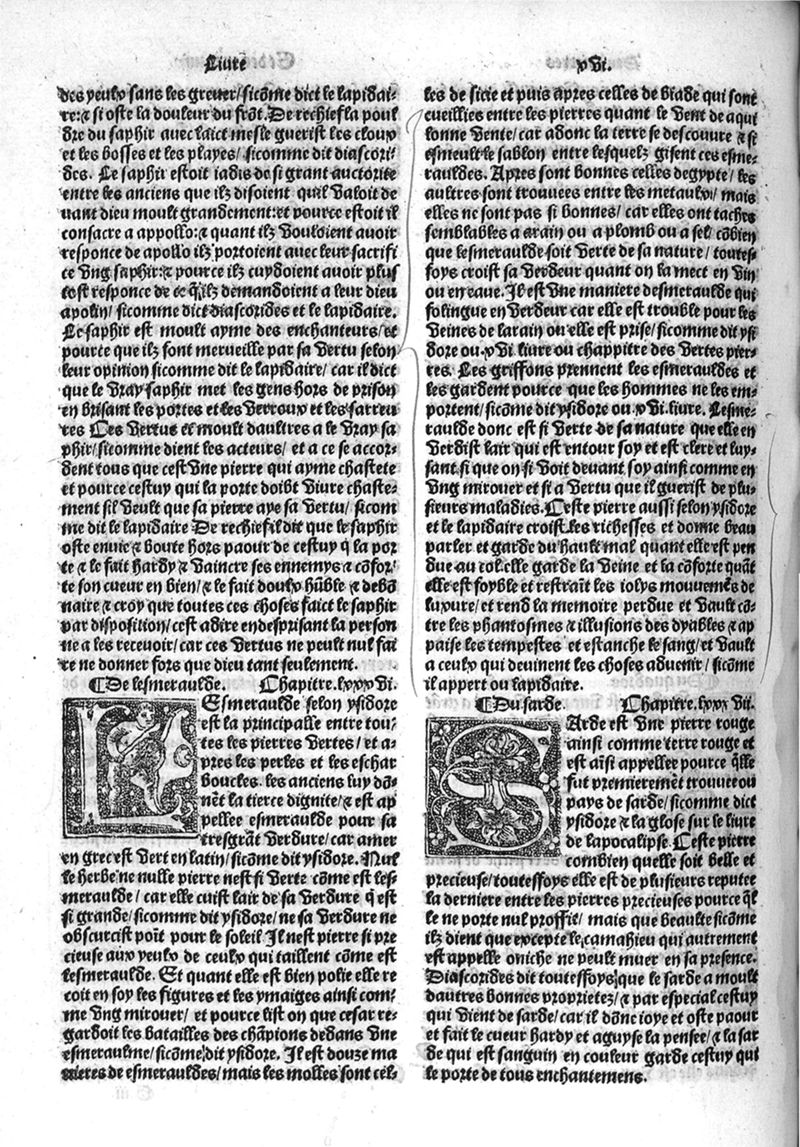 Livre
xvi.
des yeulx sans les grever/ sicõme dict le lapidai-
re: ⁊ si oste la douleur du frõt. De rechief la poul
dre du saphir avec laict mesle guerist les cloux
et les bosses et les playes/ sicomme dit diascori-
des. Le saphir estoit iadis de si grant auctorite
entre les anciens que ilz disoient quil valoit de
vant dieu moult grandement: et pource estoit il
consacre a appollo: ⁊ quant ilz vouloient avoir
responce de apollo ilz portoient avec leur sacrifi
ce ung saphir: ⁊ pource ilz cuydoient avoir plus
tost responce de ce q̃ ilz demandoient a leur dieu
apolin/ sicomme dict diascorides et le lapidaire.
Le saphir est moult ayme des enchanteurs/ et
pource que ilz font merveille par sa vertu selon
leur opinion sicomme dit le lapidaire/ car il dict
que le vray saphir met les gens hors de prison
en brisant les portes et les verroux et les sarreu
res Ces vertus et moult daultres a le vray sa
phir/ sicomme dient les acteurs/ et a ce se accor-
dent tous que cest une pierre qui ayme chastete
et pource cestuy qui la porte doibt vivre chaste-
ment sil veult que sa pierre aye sa vertu/ sicom
me dit le lapidaire De rechief il dit que le saphir
oste envie ⁊ boute hors paour de cestuy q̃ la por
te ⁊ le fait hardy ⁊ vaincre ses ennemys ⁊ cõfor-
te son cueur en bien/ ⁊ le fait doulx hũble ⁊ debõ
naire ⁊ croy que toutes ces choses faict le saphir
par disposition/ cest adire en desprisant la person
ne a les recevoir/ car ces vertus ne peult nul fai
re ne donner fors que dieu tant seulement.
¶ De lesmeraulde. Chapitre. lxxxvi.
LEsmeraulde selon ysidore
est la principalle entre tou-
tes les pierres vertes/ et a-
pres les perles et les eschar
boucles. les anciens luy dõ-
nẽt la tierce dignite/ ⁊ est ap
pellee esmeraulde pour sa
tresgrãt verdure/ car amer
en grec est vert en latin/ sicõme dit ysidore. Nul
le herbe ne nulle pierre nest si verte cõme est les-
meraulde/ car elle cuist lair de sa verdure q̃ est
si grande/ sicomme dit ysidore/ ne sa verdure ne
obscurcist poĩt pour le soleil Il nest pierre si pre
cieuse aux yeulx de ceulx qui taillent cõme est
lesmeraulde. Et quant elle est bien polie elle re
coit en soy les figures et les ymaiges ainsi com/
me ung mirouer/ et pource list on que cesar re-
gardoit les batailles des chãpions dedans une
esmeraulme/ sicõme dit ysidore. Il est douze ma
nieres de esmerauldes/ mais les molles sont cel-
les de sicie et puis apres celles de biade qui sont
cueillies entre les pierres quant le vent de aqui
lonne vente/ car adonc la terre se descouvre ⁊ si
esmeult le sablon entre lesquelz gisent ces esme-
rauldes. Apres sont bonnes celles degypte/ les
aultres sont trouvees entre les metaulx/ mais
elles ne sont pas si bonnes/ car elles ont taches
semblables a arain ou a plomb ou a sel cõbien
que lesmeraulde soit verte de sa nature/ toutes-
foys croist sa verdeur quant on la mect en vin
ou en eaue. Il est une maniere desmeraulde qui
folingue en verdeur car elle est trouble pour les
veines de larain ou elle est prise/ sicomme dit ysi
dore ou. xvi. livre ou chappitre des vertes pier-
res. Les griffons prennent les esmerauldes et
les gardent pource que les hommes ne les em-
portent/ sicõme dit ysidore ou. xvi. livre. Lesme-
raulde donc est si verte de sa nature que elle en
verdist lair qui est entour soy et est clere et luy-
sant si que on si voit devant soy ainsi comme en
ung mirouer et si a vertu que il guerist de plu-
sieurs maladies. Ceste pierre aussi selon ysidore
et le lapidaire croist les richesses et donne beau
parler et garde du hault mal quant elle est pen
due au col. elle garde la veine et la cõforte quãt
elle est foyble et restraĩt les iolys mouvemẽs de
luxure/ et rend la memoire perdue et vault cõ-
tre les phantosmes ⁊ illusions des dyables ⁊ ap
paise les tempestes et estanche le sang/ et vault
a ceulx qui devinent les choses advenir/ sicõme
il appert ou lapidaire.
¶ Du sarde. Chapitre. lxxxvii.
SArde est une pierre rouge
ainsi comme terre rouge et
est aĩsi appellee pource q̃lle
fut premieremẽt trouvee ou
pays de sarde/ sicomme dict
ysidore ⁊ la glose sur le livre
de lapocalipse. Ceste pierre
combien quelle soit belle et
precieuse/ toutesfoys elle est de plusieurs reputee
la derniere entre les pierres precieuses pource q̃l
le ne porte nul proffit/ mais que beaulte sicõme
ilz dient que excepte le camahieu qui autrement
est appelle oniche ne peult muer en sa presence.
Diascorides dit toutesfoys que le sarde a moult
dautres bonnes proprietez/ ⁊ par especial cestuy
qui vient de sarde/ car il dõne ioye et oste paour
et fait le cueur hardy et aguyse la penser/ ⁊ la sar
de qui est sanguin en couleur garde cestuy qui
le porte de tous enchantemens.